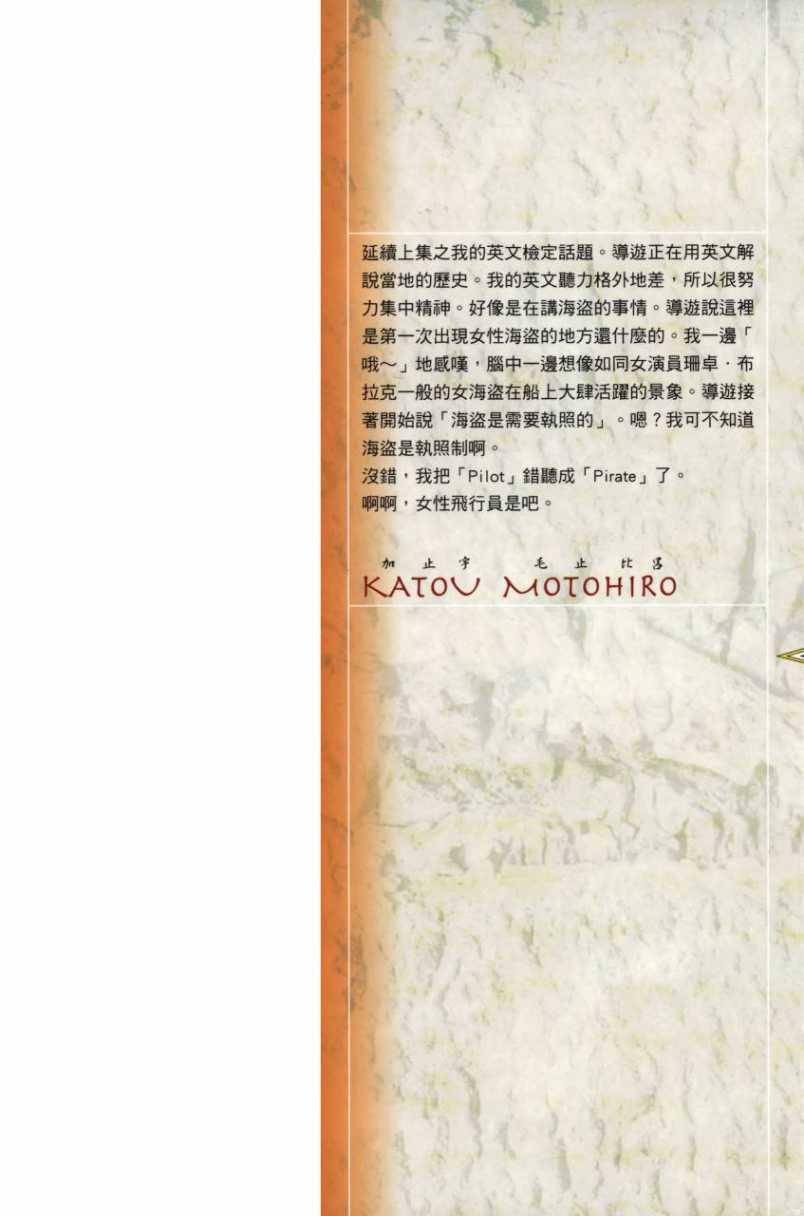 延續上集之我的英文檢定話題。導遊正在用英文解
說當地的歷史。我的英文聽力格外地差，所以很努
力集中精神。好像是在講海盜的事情。導遊說這裡
是第一次出現女性海盜的地方還什麼的。我一邊「
哦～」地感嘆，腦中一邊想像如同女演員珊卓．布
拉克一般的女海盜在船上大肆活躍的景象。導遊接
著開始說「海盜是需要執照的」。嗯？我可不知道
海盜是執照制啊。
沒錯，我把「Pilot」錯聽成「Pirate」了。
啊啊，女性飛行員是吧。
加止宇 毛止比呂
KATOU MOTOHIRO